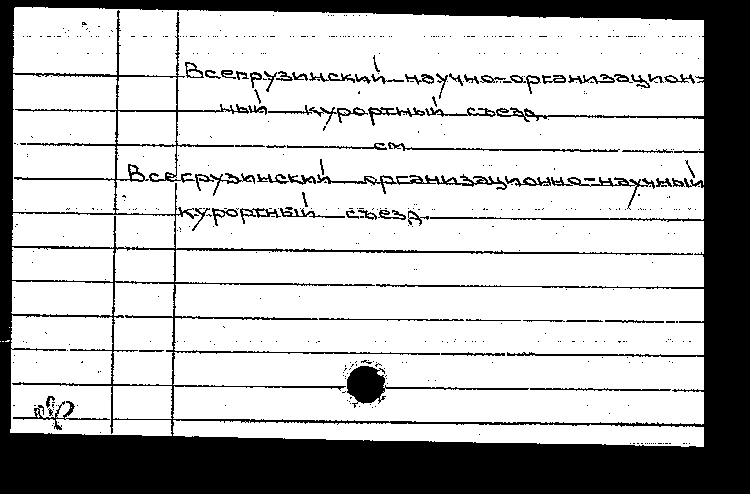 Всегрузинский научно-организацион-
ный курортный съезд.
см.
Всегрузинский организационно-научный
курортный съезд.